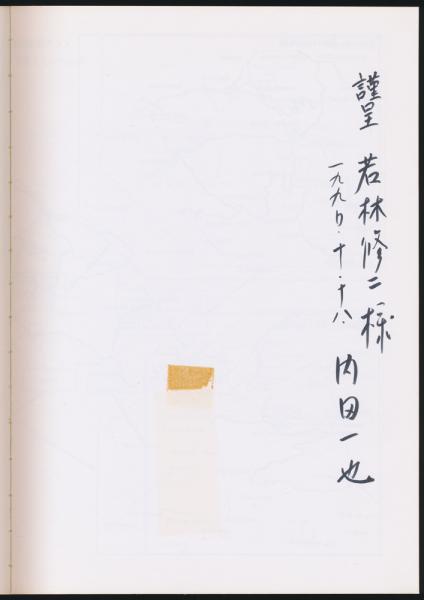 謹呈 若林修二様
一九九〇・十・十八
内田一也